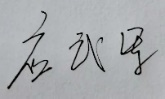 应武军